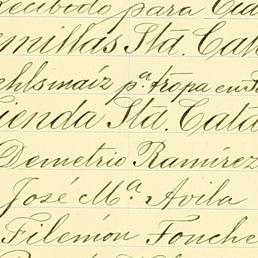 Recibido para
emillas Sta. Cat
maíz pª. tropa en
ienda Sta. Cata
Demetrio Ramírez
José Mª. Avila
Filemón Fouche